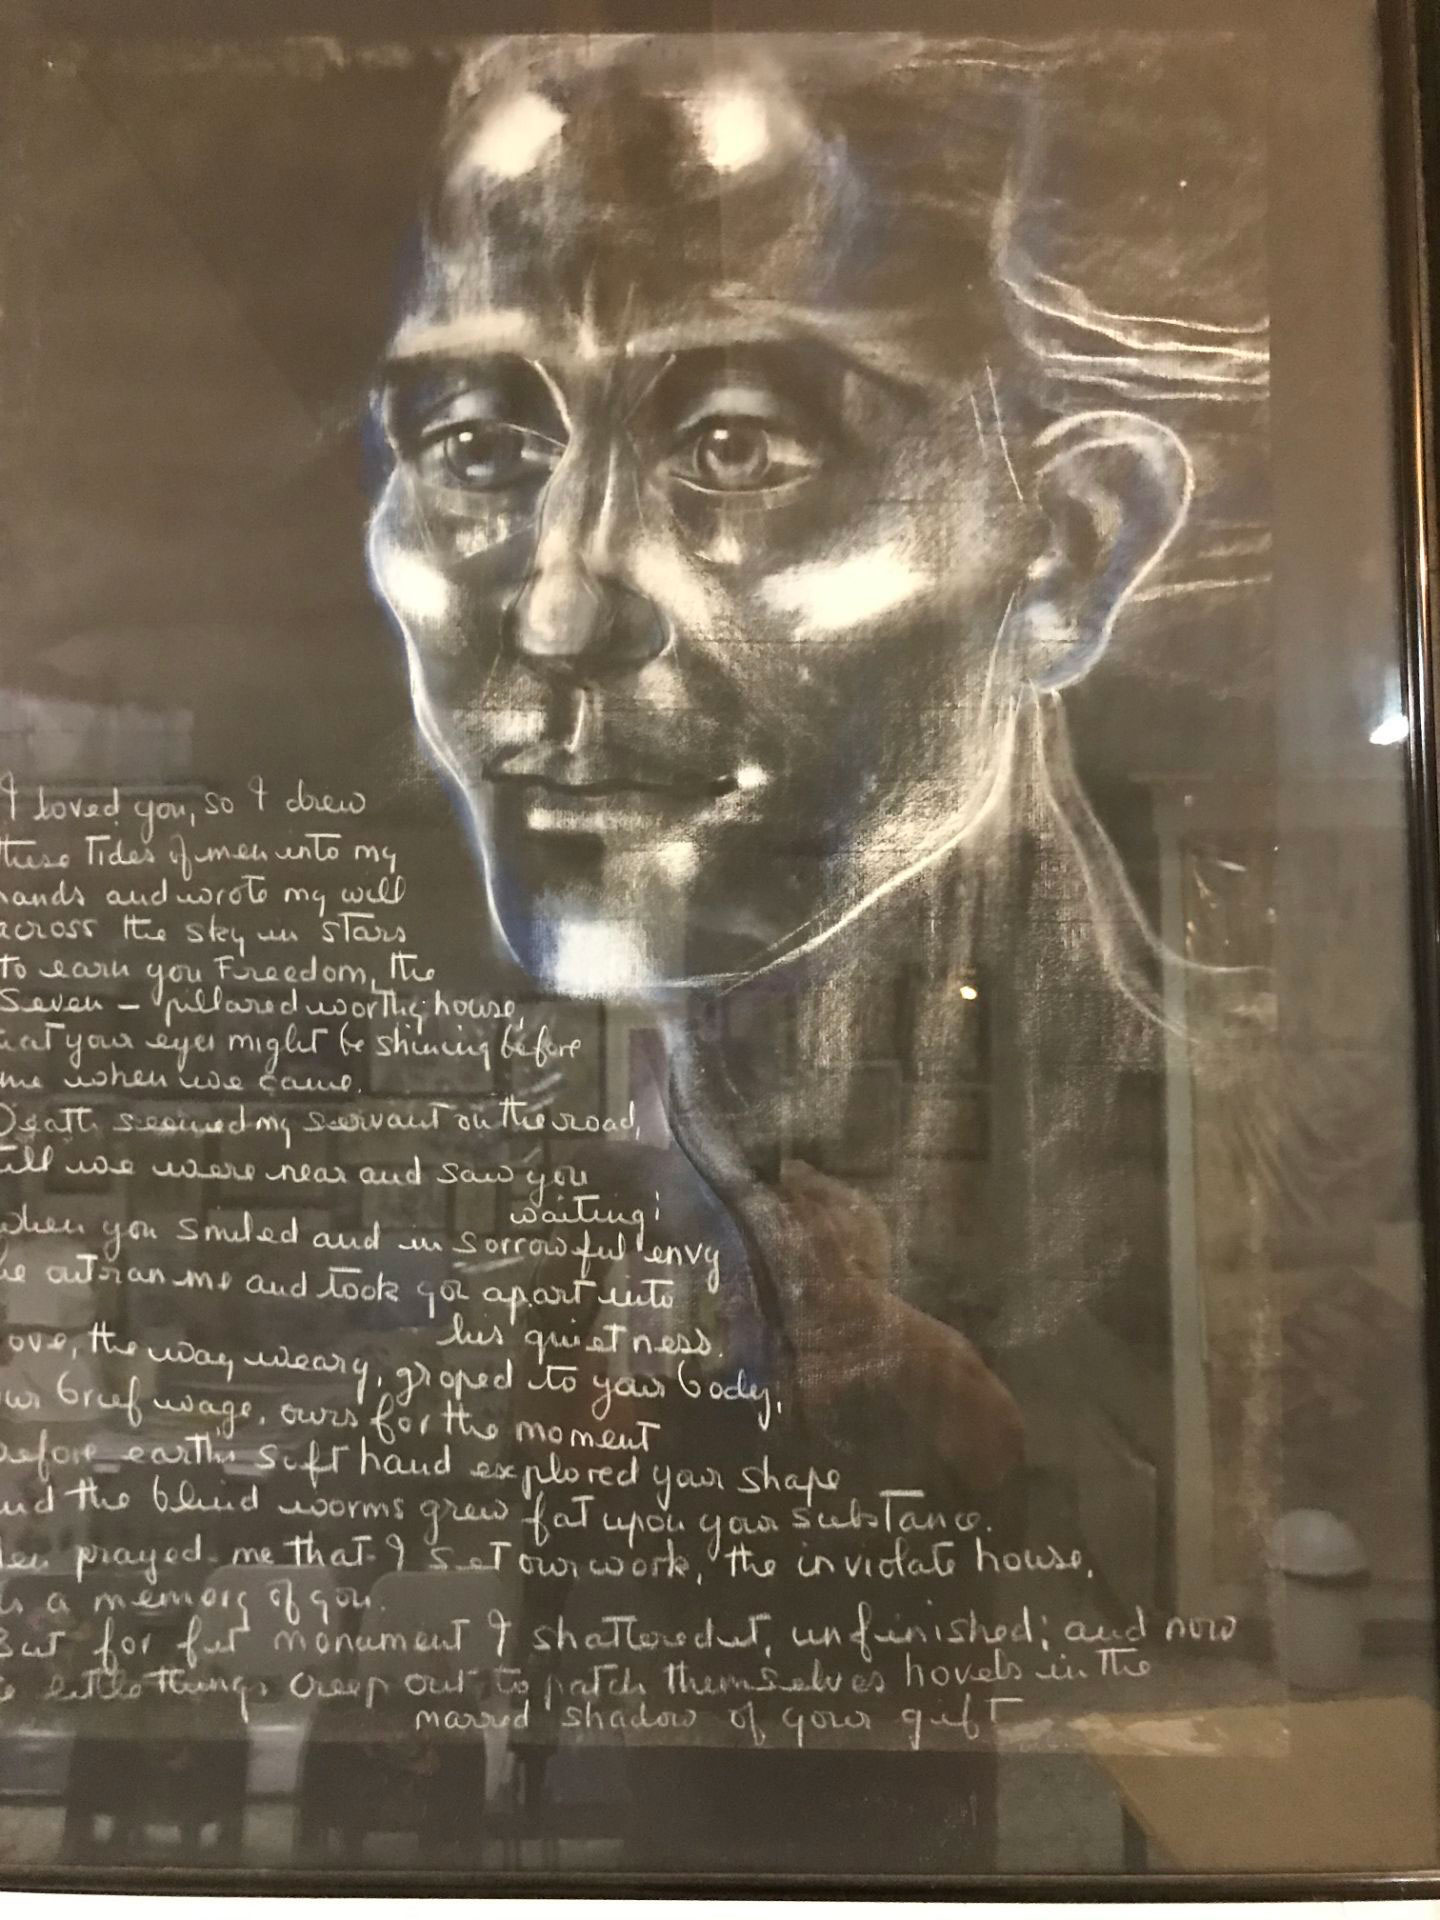 I loved you, so I drew
these Tides of men into my
hands and wrote my will
across the sky in stars
to earn you Freedom, the
Seven - pillared worthy house,
that your eyes might be shining before
me when we came.
Death seemed my servant on the road,
till we were near and saw you
waiting;
when you smiled and in sorrowful envy
he outran me and took you apart into
his quietness.
Love, the way weary, groped to your body,
our brief wage, ours for the moment
before earth's soft hand explored your shape
and the blind worms grew fat upon your substance.
Men prayed me that I set our work, the inviolate house,
as a memory of you.
But for fit monument I shattered it, unfinished; and now
the little things creep out to patch themselves hovels in the
marred shadow of your gift